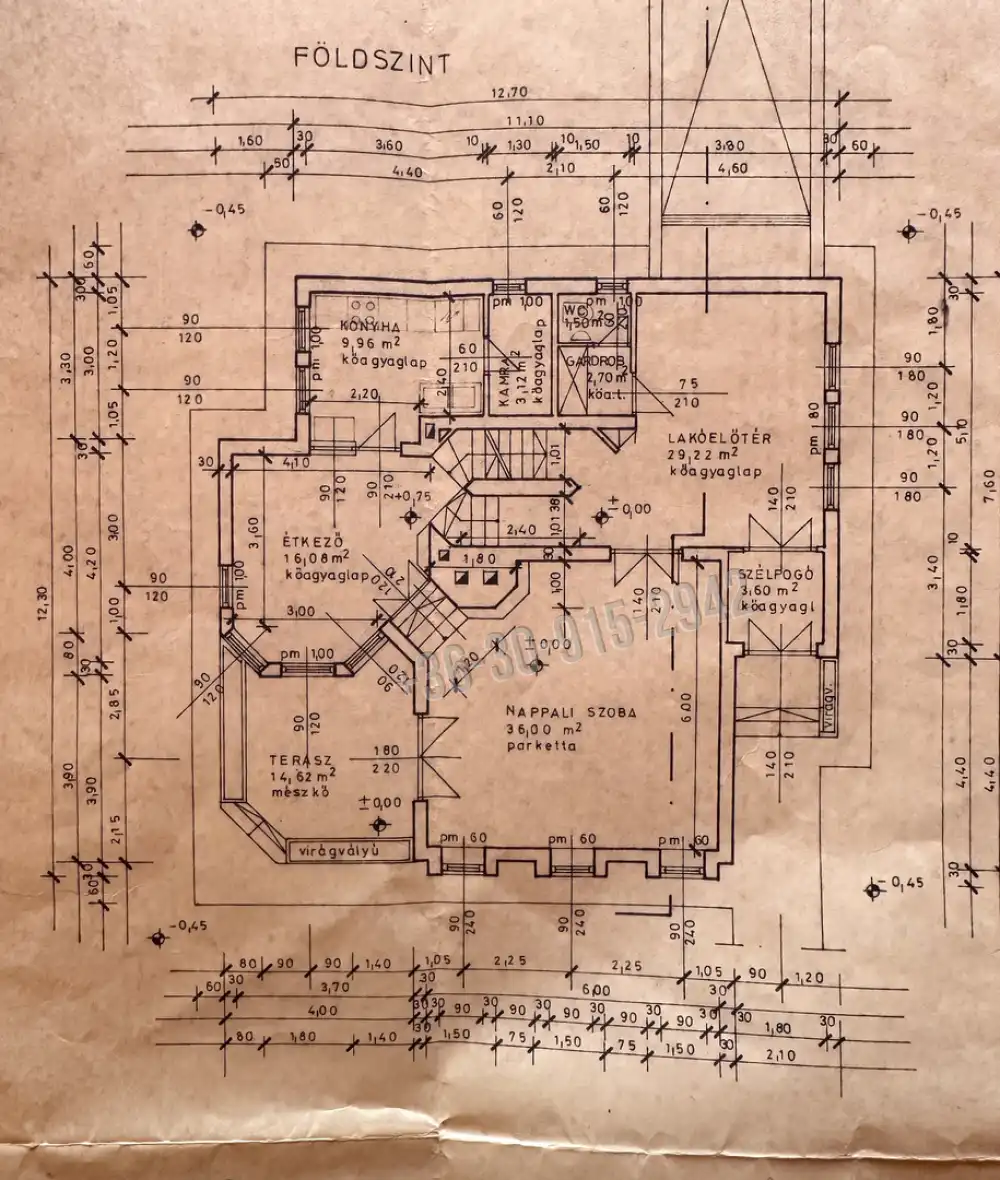 FÖLDSZINT
12,70
11,10
1,60 30 3,60 10 1,30 10 1,50 10 3,80 30 60
50 4,40 2,10 4,60
60 120 60 120
-0,45
-0,45
pm 1,00 pm 1,00
KONYHA
9,96 m²
kőagyaglap
pm 1,00
60
210
2,40
2,20
KAMRA
3,12 m²
kőagyaglap
WC
1,50 m²
GARDROB
2,70 m²
kőa.l.
75
210
LAKÓELŐTÉR
29,22 m²
kőagyaglap
pm 1,80
90
120
90
120
90
180
90
180
90
180
30 4,10
90 120
90 210
+0,75
1,01
38
1,01
2,40
±0,00
140 210
ÉTKEZŐ
16,08 m²
kőagyaglap
3,60
3,00
pm 1,00
90
120
1,80
30
1,00
140 210
SZÉLFOGÓ
3,60 m²
kőagyagl
+36-30-915-2942
pm 1,00
90 120
90 120
120 210
120
±0,00
NAPPALI SZOBA
36,00 m²
parketta
6,00
virágv.
140 210
90 120
180
220
TERASZ
14,62 m²
mészkő
±0,00
virágvályú
pm 60 pm 60 pm 60
90 240 90 240 90 240
-0,45
-0,45
12,30
3,30 30 4,00 80 30 3,90 30
60 30 3,00 4,20 3,90 60
1,05 1,20 1,05 3,00 1,00 2,85 2,15
30 1,80 1,20 1,20 3,40 4,40 30
5,10 10 1,80 30
7,60 4,40
80 90 90 1,40 1,05 2,25 2,25 1,05 90 1,20
60 30 3,70 30 6,00 30
4,00 30 30 90 30 90 30 90 30 90 30 90 30 30 1,80 30
80 1,80 1,40 30 1,50 75 1,50 75 1,50 30 2,10